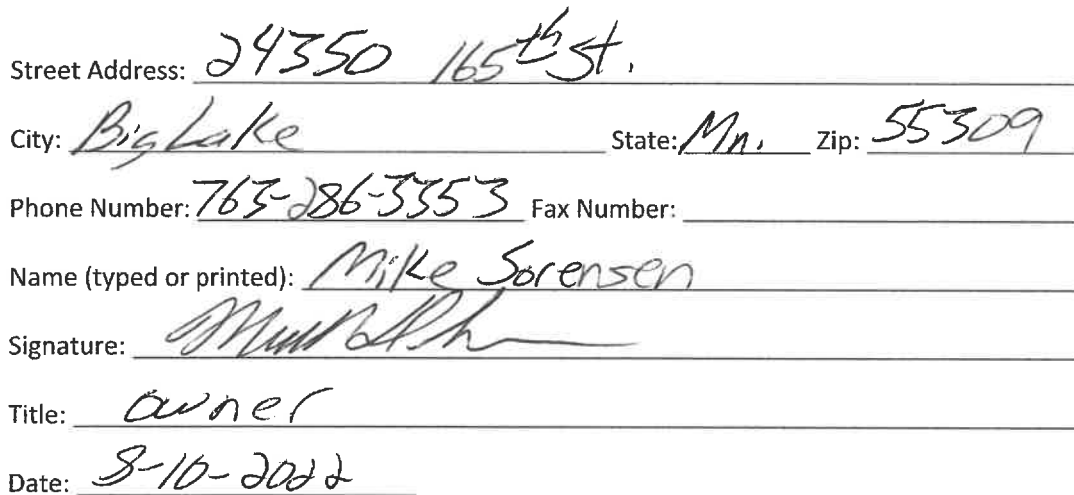 Street Address: 24350 165th St.
City: Big Lake State: Mn. Zip: 55309
Phone Number: 763-286-3353 Fax Number:
Name (typed or printed): Mike Sorensen
Signature:
Title: owner
Date: 8-10-2022